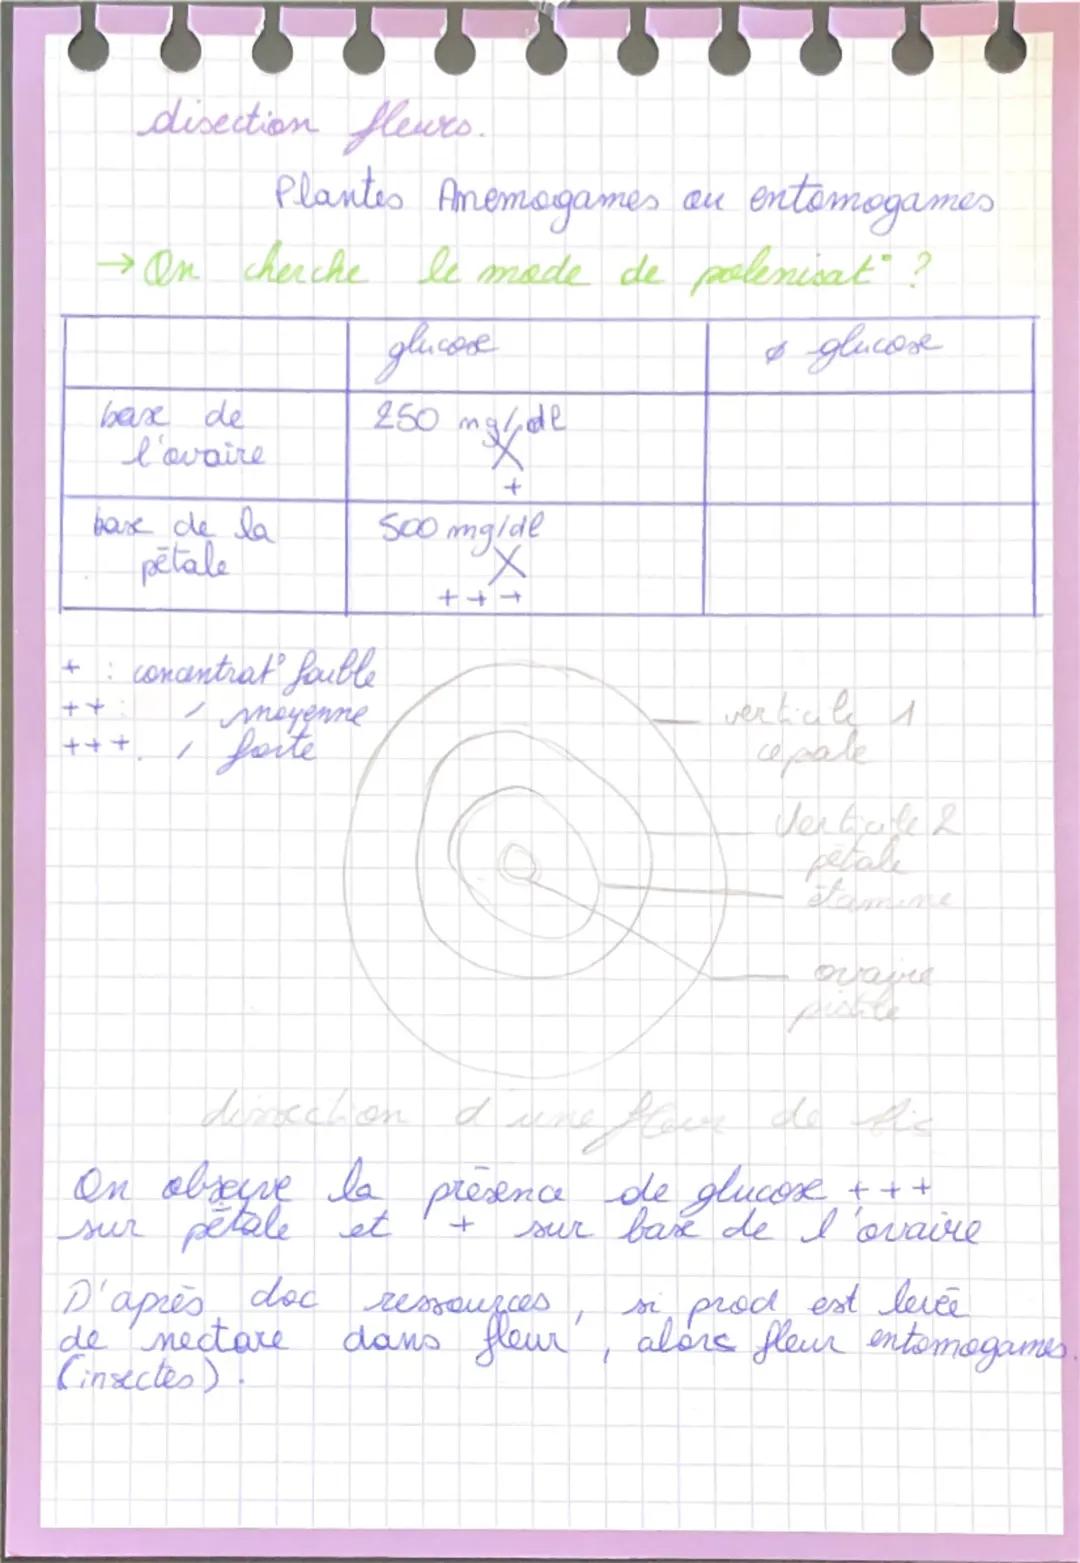 disection fleurs.
Plantes Anemogames ou entomogames
→ On cherche le mode de polenisat° ?
glucose
ø glucose
base de
l'ovaire
250 mg/dl
X
+
base de la
pétale
500 mg/dl
X
+++
+ : concentrat° faible
++ : / moyenne
+++. / forte
verticile 1
cepale
Verticile 2
pétale
étamine
ovaire
pistile
dissection d'une fleur de lis
On observe la présence de glucose +++
sur pétale et + sur base de l'ovaire
D'après doc ressources, si prod est
de nectare dans fleur, alors fleur entomogames.
(insectes).